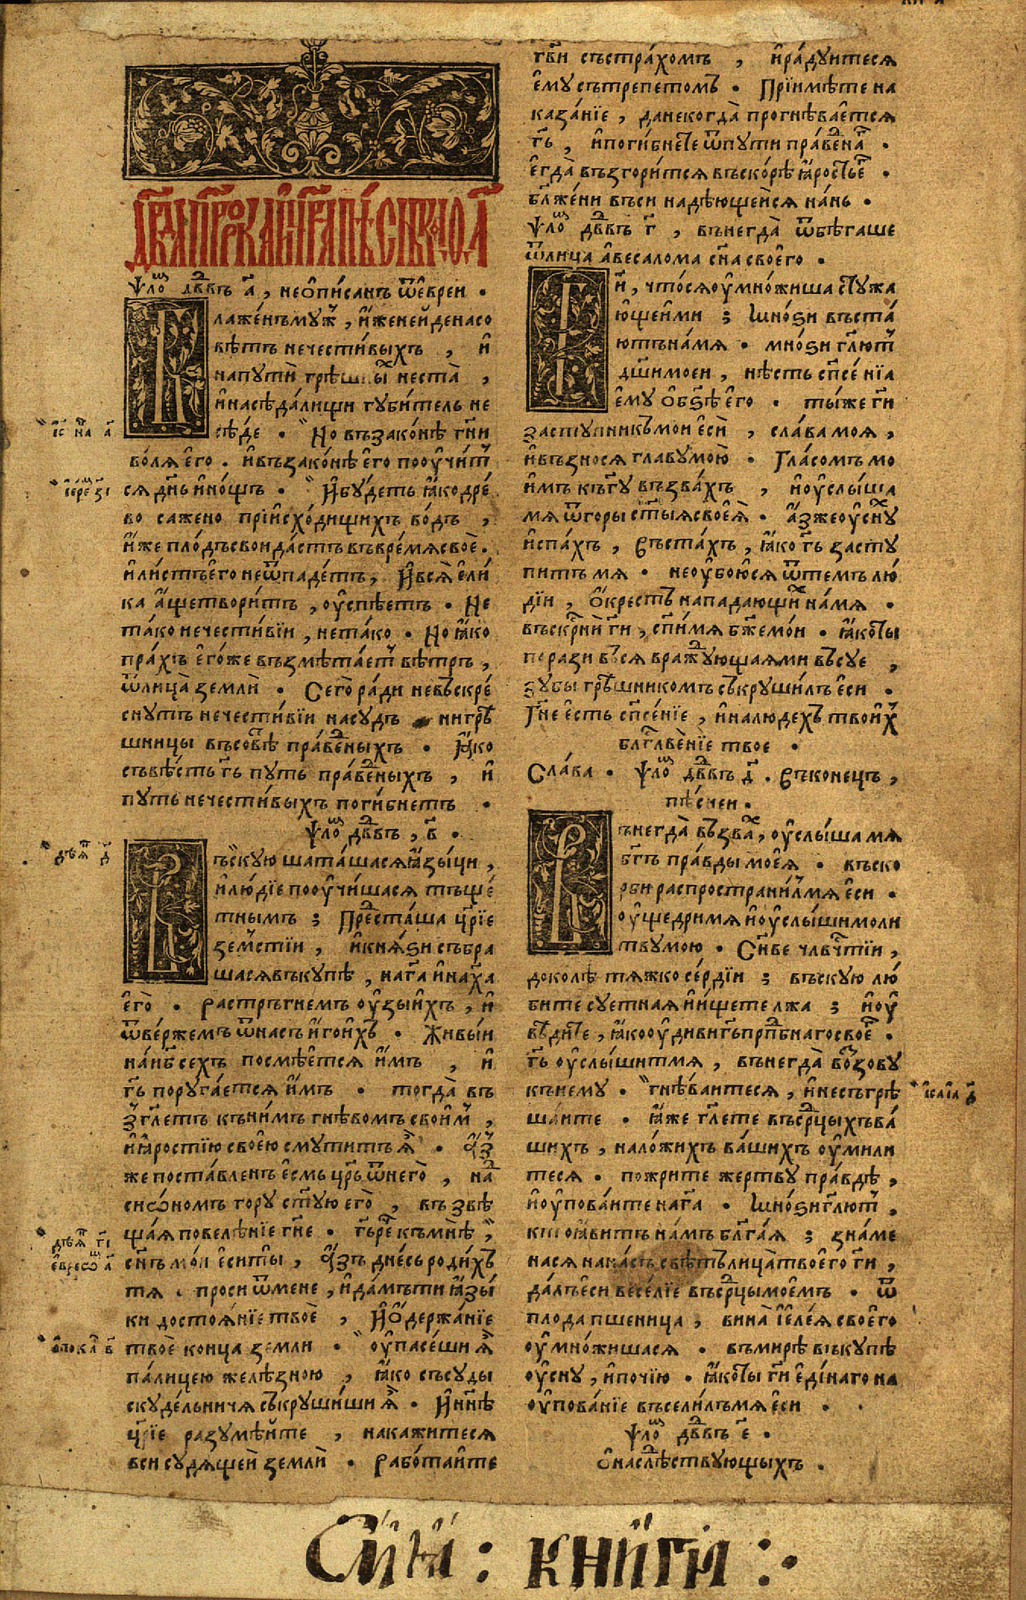 ѱло́ дв҃въ а҃, неѻ̀писанъ ѿ є҆вреи .
лаже́нъ мꙋ́ж, и҆́же неи́де на со
вѣ́тъ нечести́выхъ , и҆
на пꙋтѝ грѣ́шны нестà ,
и҆ на сѣда́лищи гꙋби́тель не
сѣ́де . Но въ зако́нѣ гн҃и
во́лꙗ є҆го̀ . и҆ въ зако́нѣ є҆го̀ поꙋчи́т
сѧ дн҃ь и҆ но́щъ . И҆ бꙋ́деть ꙗ҆́ко дре́
во сажено̀ прѝ и҆схо́дищихъ во́дъ ,
и҆́же пло́дъ свои да́стъ въ вре́мѧ своѐ .
и҆ ли́стъ є҆го̀ не ѿпаде́тъ, И҆ всѧ̀ є҆ли́
ка а҆́ще твори́тъ , ꙋ҆спѣ́етъ . Не
та́ко нечести́вїи , не та́ко . Но ꙗ҆́ко
пра́хъ є҆го́же възмѣта́ет вѣ́тръ ,
ѿ лица̀ землѝ . Сего̀ ра́ди не въскре́
снꙋтъ нечести́вїи на сꙋдъ ни грѣ́
шницы въ совѣ́ѣ пра́ведныхъ . Ꙗ҆́ко
съвѣ́сть гь҃ пꙋть пра́ведныхъ , и҆
пꙋть нечести́выхъ поги́бнетъ .
ѱло́ дв҃въ , в҃ .
ъскꙋю шата́шасѧ ꙗ҆зы́ци ,
и҆ лю́дїе поꙋчи́шасѧ тъще́
тнымъ ; Преста́ша цр҃їе
зе́мстїи , и҆ кнѧ́ѕи събра
шасѧ въкꙋпѣ , на г҃а и҆ на ха҃
є҆го̀ . растръгнемъ ꙋ҆́зы и҆́хъ , и҆
ѿве́ржемъ ѿ насъ и҆́го и҆́хъ . Живы́и
на нб҃сехъ посмѣе́тсѧ и҆́мъ , и҆
гь҃ порꙋга́етсѧ и҆́мъ . тогда̀ въ
зг҃летъ къ ни́мъ гнѣ́вомъ свои́м ,
и҆ ꙗ҆́ростїю свое́ю смꙋти́тъ ѧ҆̀ . а҆́з
же поста́вленъ є҆́смь цр҃ь ѿ него̀ , на
сиѡ́номъ горꙋ ст҃ꙋю є҆го̀ , възвѣ
ща́ѧ повелѣ́нїе гн҃е . гь҃ рѐ къ мнѣ̀ ,
сн҃ъ мо́и є҆сѝ ты̀ , а҆́зъ дне́сь роди́х
тѧ . проси ѿ мене , и҆ да́мъ ти ꙗ҆зы́
ки достоѧ́нїе твоѐ , И҆ ѻ҆держа́нїе
твоѐ конца̀ землѝ . ꙋ҆пасе́ши ѧ҆̀
па́лицею желѣ́зною , ꙗ҆́ко съсꙋ́ды
скꙋде́льничѧ съкрꙋши́ши ѧ҆̀ . И҆ нн҃ѣ
цр҃їе разꙋмѣ́ите , накажи́тесѧ
вси сꙋдѧ́щеи землѝ . рабо́таите
гв҃и съ стра́хомъ , и҆ ра́дꙋитесѧ
є҆мꙋ съ тре́петомъ . Прїимѣ́те на
каза́нїе , да некогда̀ прогнѣ́ваетсѧ
гь҃ , и҆ поги́бнете ѿ пꙋти пра́ведна .
є҆гда̀ възгори́тсѧ въско́рѣ ꙗ҆́рость є҆ .
бл҃же́ни вси надѣ́ющеисѧ на́нь .
ѱло́ дв҃въ г҃ , внегда̀ ѿбѣ́гаше
ѿ лица а҆весало́ма сн҃а своего̀ .
и҃ , что́ сѧ ꙋ҆мно́жиша стꙋжа
ю́щеи ми ; мно́ѕи въста́
ютъ на́ мѧ . мно́ѕи гл҃ют
дш҃и мое́и , нѣ́сть сп҃се́нїа
є҆мꙋ ѻ҆ бз҃ѣ є҆го̀ . ты́ же гн҃и
застꙋпникъ мои є҆сѝ , сла́ва моѧ̀ ,
и҆ възносѧ главꙋ мою̀ . Гла́сомъ мо
и҆мъ къ гꙋ҃ възва́хъ , и҆ ꙋ҆слы́ша
мѧ ѿ горы ст҃ы́ѧ своеѧ̀ . а҆́з же ꙋ҆снꙋ́
и҆ спа́хъ , въста́хъ , ꙗ҆́ко гь҃ застꙋ
питъ мѧ . не ꙋ҆бою́сѧ ѿ те́мъ лю́
дїи , ѻ҆́крестъ напада́ющи на́ мѧ .
въскр҃ни́ гн҃и , сп҃си́ мѧ бж҃е мо́и . ꙗ҆́ко ты
порази всѧ враждꙋ́ющаѧ ми всꙋе ,
зꙋ́бы грѣ́шникомъ съкрꙋши́лъ є҆си .
Гн҃е є҆́сть сп҃се́нїе , и҆ на лю́дехъ твои́х
бл҃гве́нїе твое .
Сла́ва . ѱло́ дв҃въ д҃ . въ коне́цъ ,
пѣ́снеи .
ънегда̀ възва̀ , ꙋ҆слы́ша мѧ
бг҃ъ пра́вды моеѧ̀ . въ ско
рби распространи́л мѧ є҆си .
ꙋ҆ще́дри мѧ и҆ ꙋ҆слы́ши моли
твꙋ мою̀ . Сн҃ове чл҃вчстїи ,
доколѣ̀ тѧ́жко се́рдїи ; въскꙋю лю́
бите сꙋ́етнаѧ и҆ и҆́щете лжа̀ ; и҆ ꙋ҆
вѣ́дите , ꙗ҆́ко ꙋ҆диви́ гь҃ прпд҃бнаго своѐ .
гь҃ ꙋ҆слы́шит мѧ , внегда̀ возовꙋ̀
къ немꙋ . гнѣ́ваитесѧ , и҆ не съгрѣ
ша́ите . ꙗ҆́же гл҃ете въ срд҃цыхъ ва́
шихъ , на ло́жихъ ва́шихъ ꙋ҆мили́
тесѧ . пожри́те же́ртвꙋ пра́вдѣ ,
и҆ ꙋ҆пова́ите на г҃а . мно́ѕи гл҃ют .
кто̀ ꙗ҆ви́тъ на́мъ бл҃га́ѧ ; зна́ме
насѧ на на́съ свѣ́тъ лица̀ твоего̀ гн҃и ,
да́лъ є҆си весе́лїе въ срд҃цы мое́мъ . ѿ
плода пшеница , вина̀ и҆ є҆ле́ѧ своего̀
ꙋ҆мно́жишасѧ . въ ми́рѣ въкꙋпѣ
ꙋ҆снꙋ , и҆ почі́ю . ꙗ҆́ко ты гн҃и є҆ди́наго на
ꙋ҆пова́нїе всели́лъ мѧ є҆си .
ѱло́ дв҃въ е҃ .
ѻ҆ наслѣ́ствꙋющыхъ .
книги :·